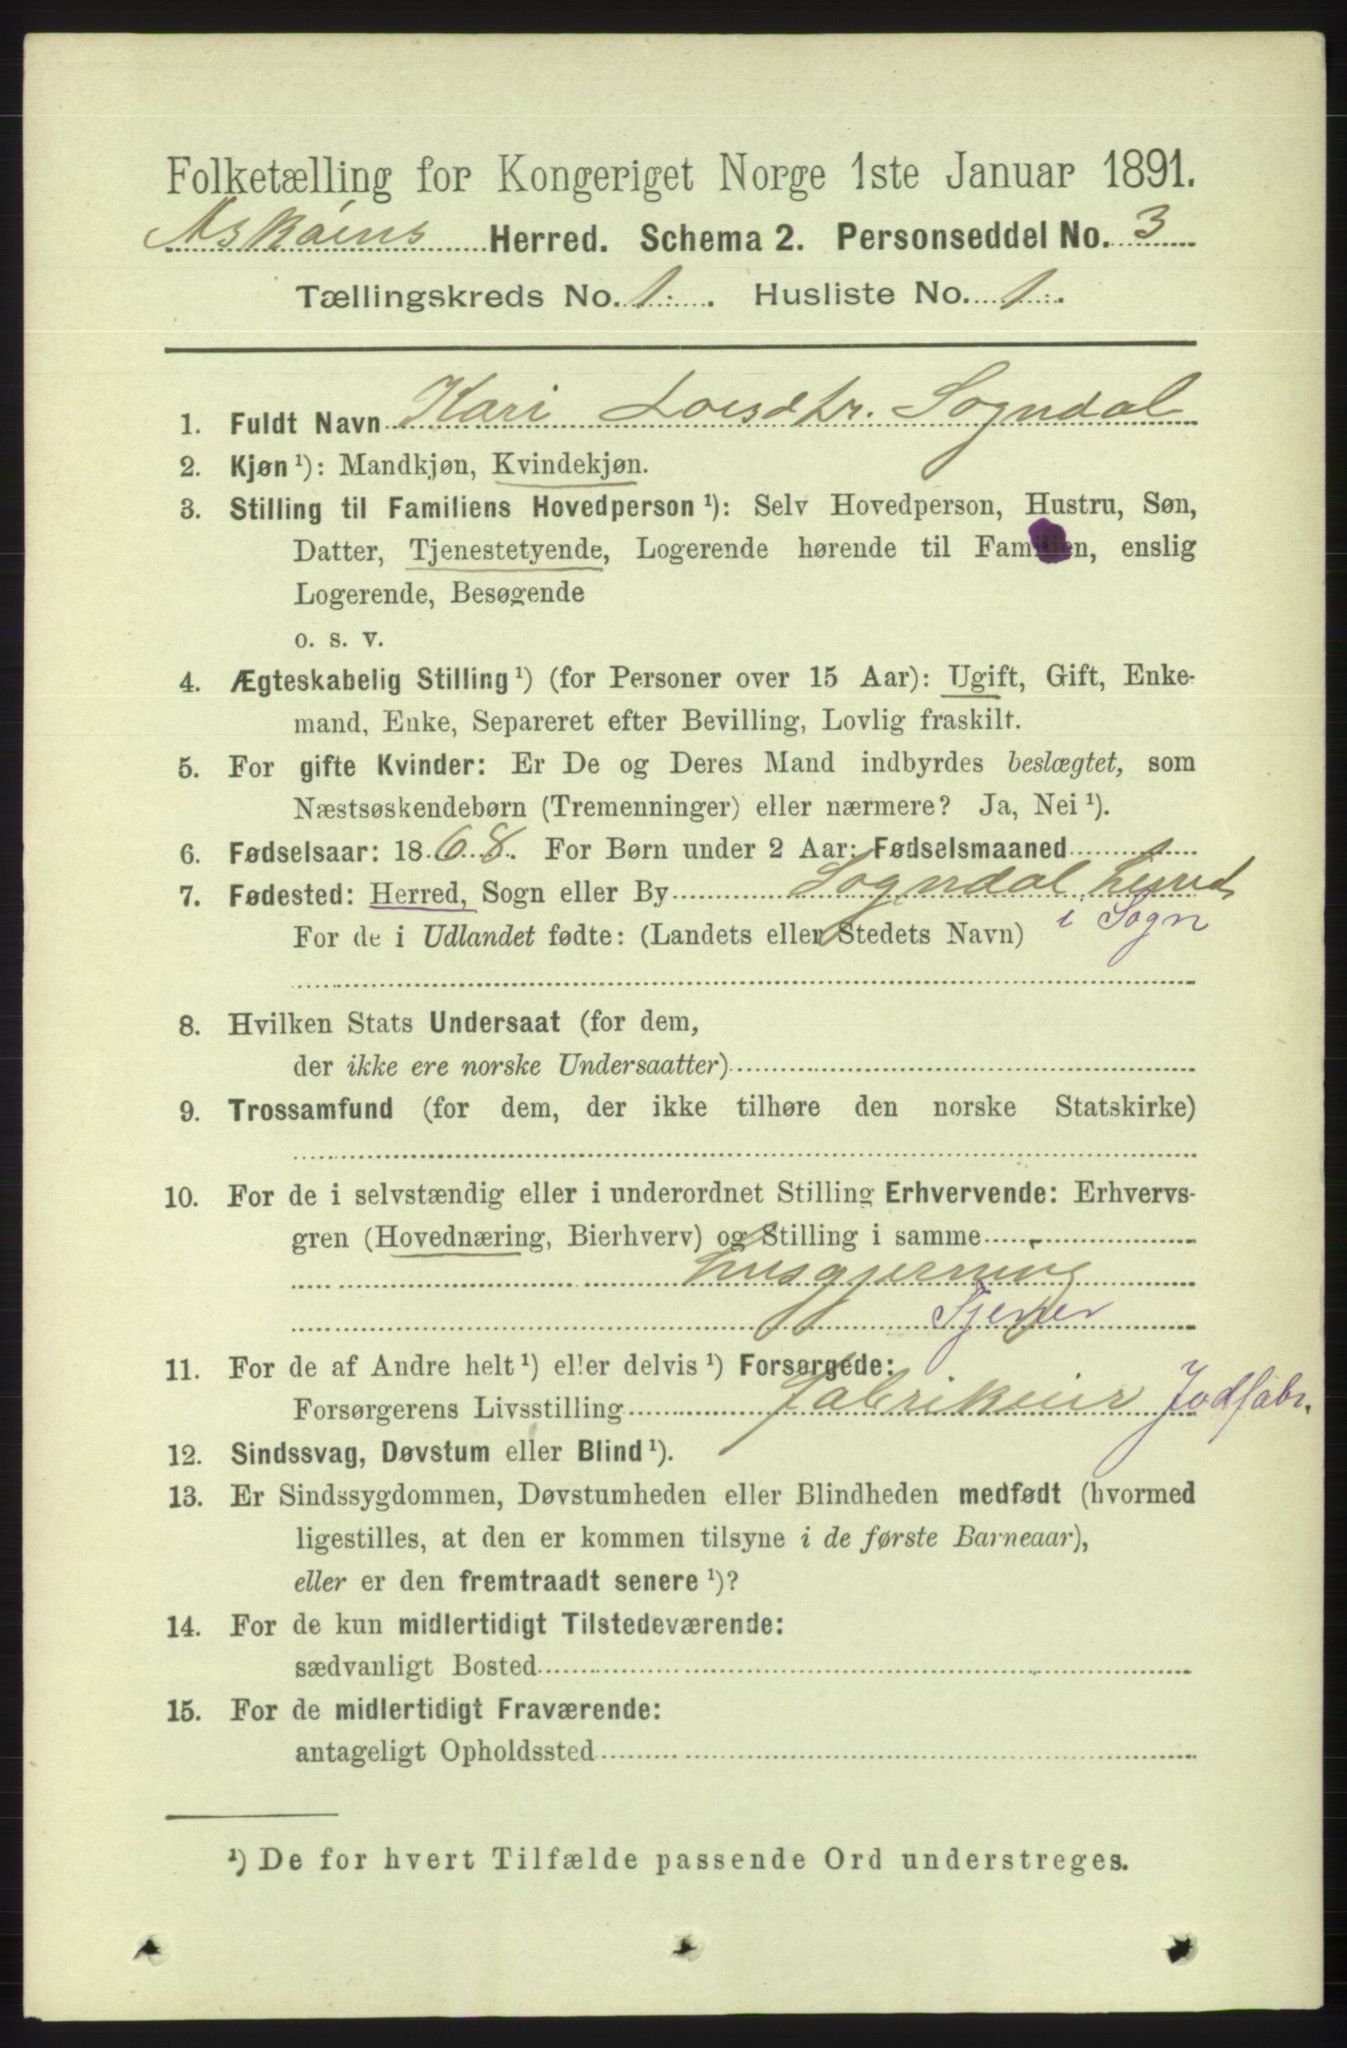 Folketælling for Kongeriget Norge 1ste Januar 1891.
Askøens Herred. Schema 2. Personseddel No. 3
Tællingskreds No. 1. Husliste No. 1.
1. Fuldt Navn Kari Loisdtr. Sogndal
2. Kjøn ¹): Mandkjøn, Kvindekjøn.
3. Stilling til Familiens Hovedperson ¹): Selv Hovedperson, Hustru, Søn,
Datter, Tjenestetyende, Logerende hørende til Familien, enslig
Logerende, Besøgende
o. s. v.
4. Ægteskabelig Stilling ¹) (for Personer over 15 Aar): Ugift, Gift, Enke-
mand, Enke, Separeret efter Bevilling, Lovlig fraskilt.
5. For gifte Kvinder: Er De og Deres Mand indbyrdes beslægtet, som
Næstsøskendebørn (Tremenninger) eller nærmere? Ja, Nei ¹).
6. Fødselsaar: 1868. For Børn under 2 Aar: Fødselsmaaned
7. Fødested: Herred, Sogn eller By Sogndal herred
For de i Udlandet fødte: (Landets eller Stedets Navn) i Sogn
8. Hvilken Stats Undersaat (for dem,
der ikke ere norske Undersaatter)
9. Trossamfund (for dem, der ikke tilhøre den norske Statskirke)
10. For de i selvstændig eller i underordnet Stilling Erhvervende: Erhvervs-
gren (Hovednæring, Bierhverv) og Stilling i samme
husgjerning
Tjener
11. For de af Andre helt ¹) eller delvis ¹) Forsørgede:
Forsørgerens Livsstilling Fabrikeier Jodfabr.
12. Sindssvag, Døvstum eller Blind ¹).
13. Er Sindssygdommen, Døvstumheden eller Blindheden medfødt (hvormed
ligestilles, at den er kommen tilsyne i de første Barneaar),
eller er den fremtraadt senere ¹)?
14. For de kun midlertidigt Tilstedeværende:
sædvanligt Bosted
15. For de midlertidigt Fraværende:
antageligt Opholdssted
¹) De for hvert Tilfælde passende Ord understreges.